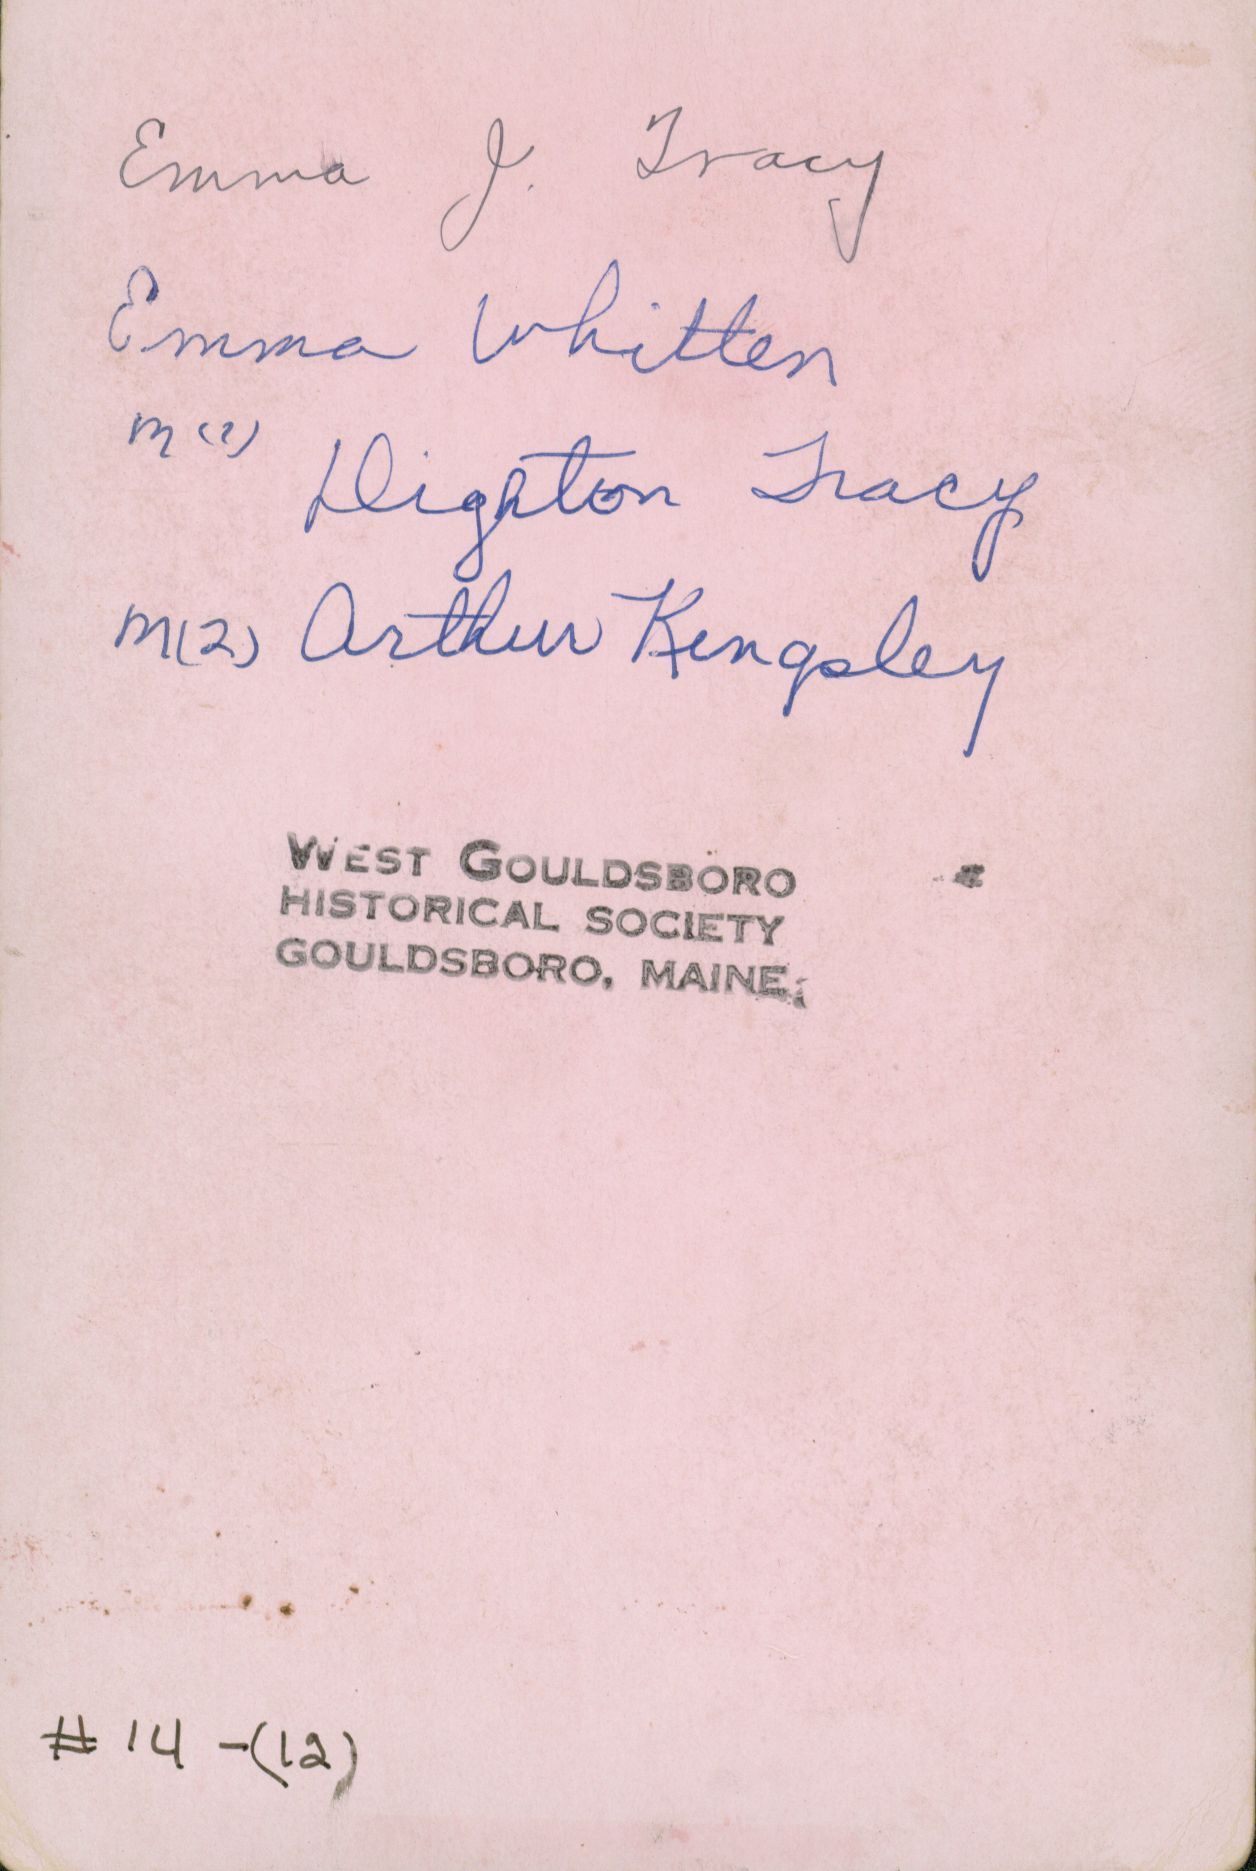 Emma J. Tracy
Emma Whitten
m(1) Dighton Tracy
m(2) Arthur Kingsley
WEST GOULDSBORO
HISTORICAL SOCIETY
GOULDSBORO, MAINE
# 14 - (12)